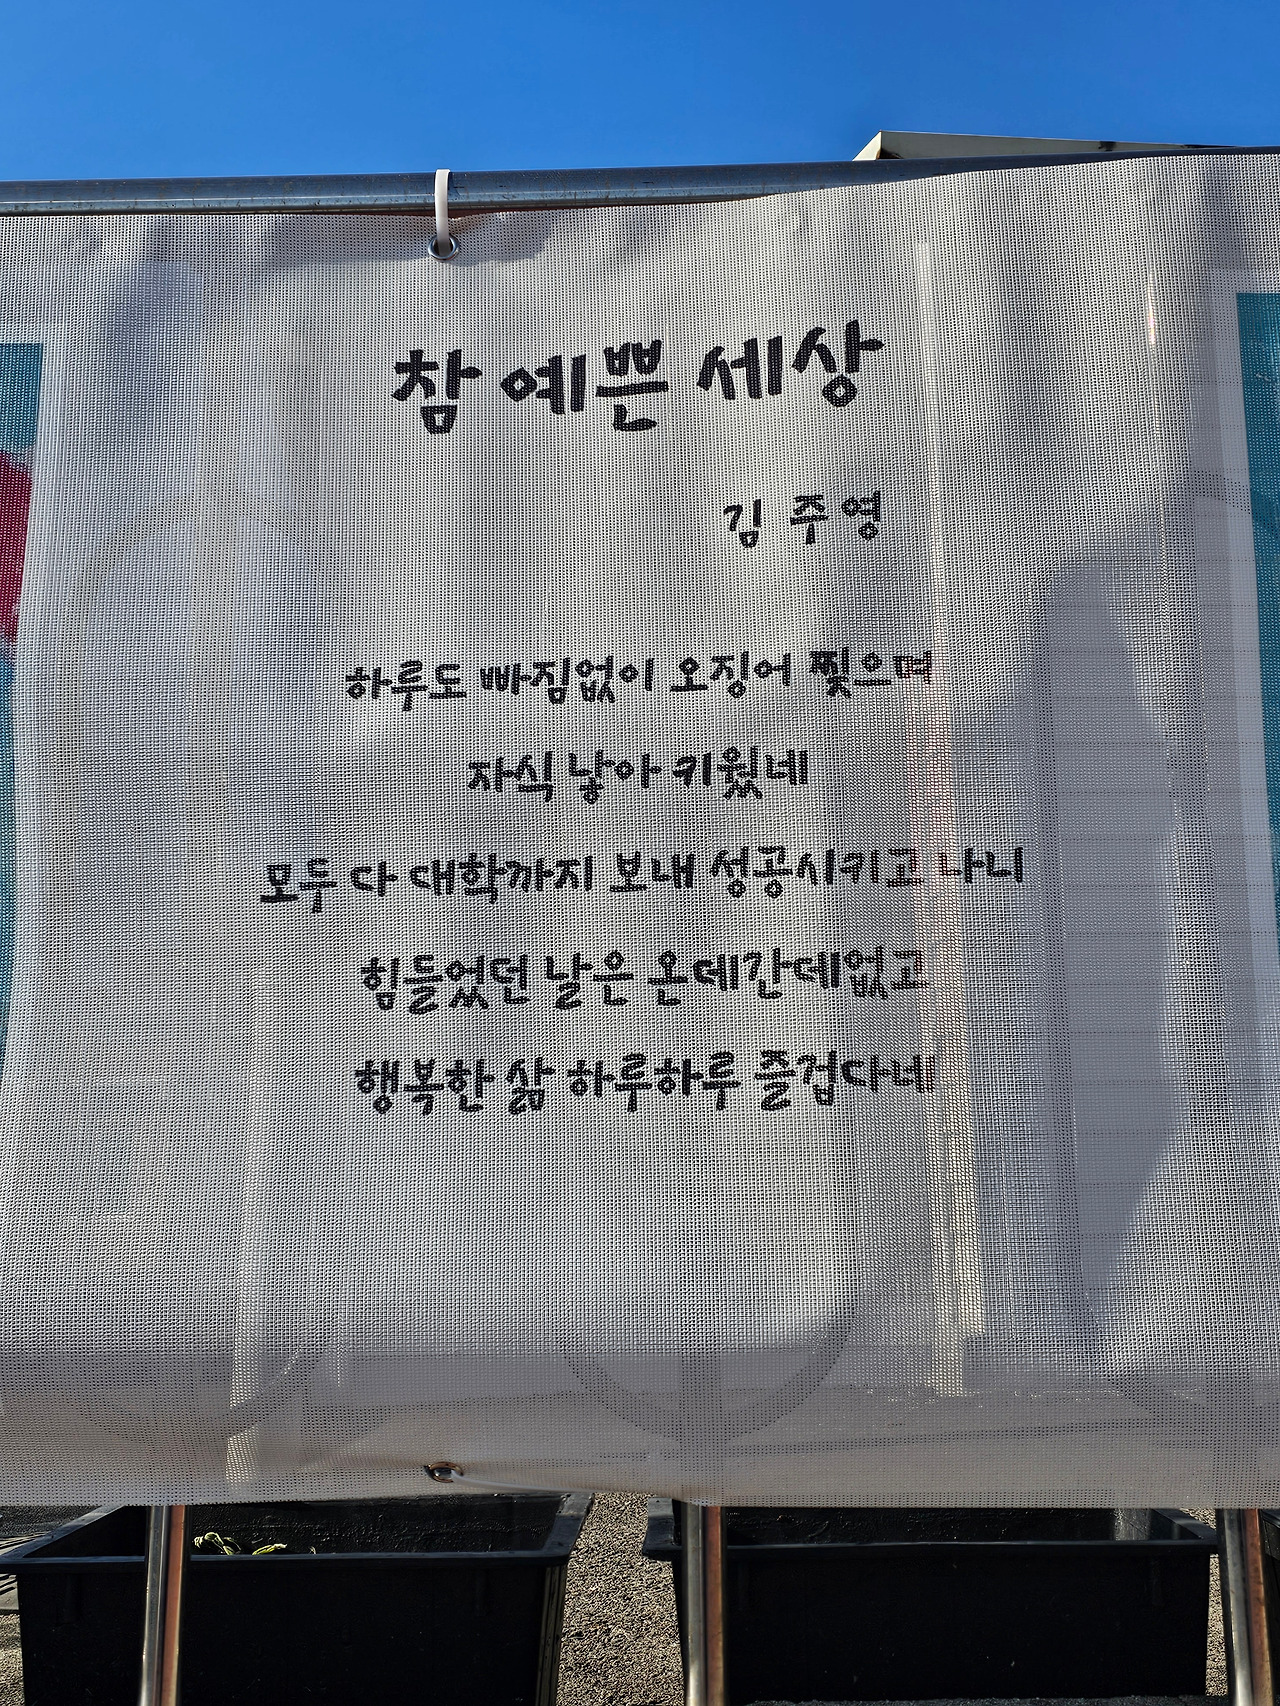 참 예쁜 세상
김 주영
하루도 빠짐없이 오징어 찢으며
자식 낳아 키웠네
모두 다 대학까지 보내 성공시키고 나니
힘들었던 날은 온데간데없고
행복한 삶 하루하루 즐겁다네